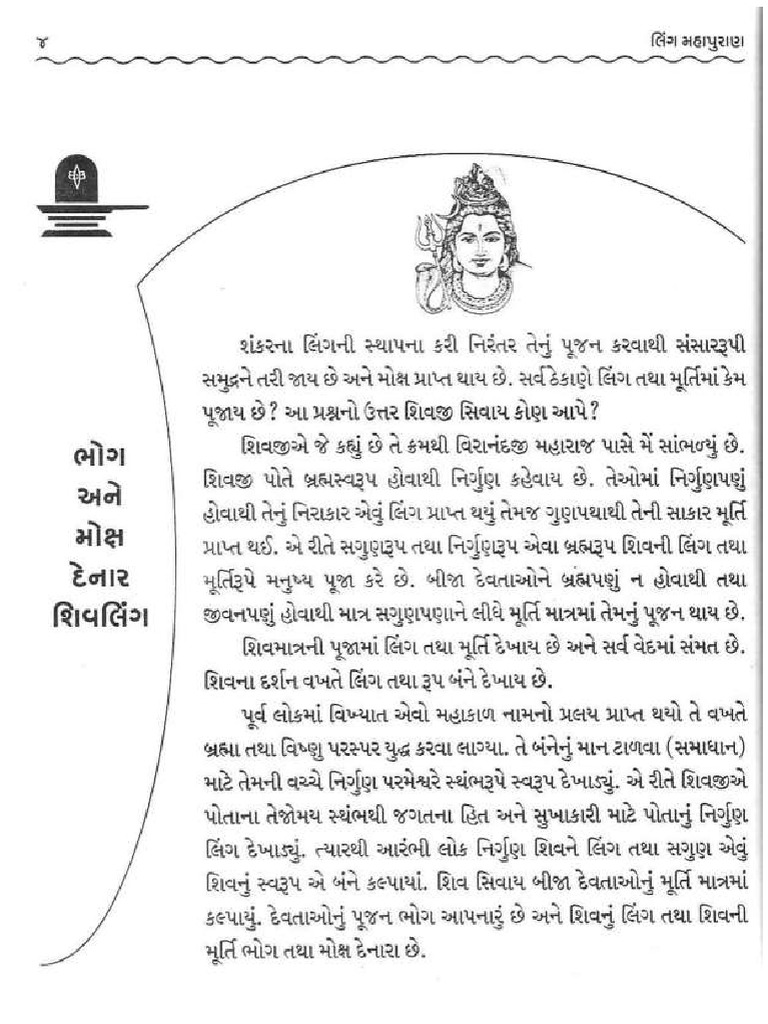 ૪
લિંગ મહાપુરાણ
ભોગ
અને
મોક્ષ
દેનાર
શિવલિંગ
શંકરના લિંગની સ્થાપના કરી નિરંતર તેનું પૂજન કરવાથી સંસારરૂપી
સમુદ્રને તરી જાય છે અને મોક્ષ પ્રાપ્ત થાય છે. સર્વ ઠેકાણે લિંગ તથા મૂર્તિમાં કેમ
પૂજાય છે? આ પ્રશ્નનો ઉત્તર શિવજી સિવાય કોણ આપે?
શિવજીએ જે કહ્યું છે તે ક્રમથી વિરાનંદજી મહારાજ પાસે મેં સાંભળ્યું છે.
શિવજી પોતે બ્રહ્મસ્વરૂપ હોવાથી નિર્ગુણ કહેવાય છે. તેઓમાં નિર્ગુણપણું
હોવાથી તેનું નિરાકાર એવું લિંગ પ્રાપ્ત થયું તેમજ ગુણપથાથી તેની સાકાર મૂર્તિ
પ્રાપ્ત થઈ. એ રીતે સગુણરૂપ તથા નિર્ગુણરૂપ એવા બ્રહ્મરૂપ શિવની લિંગ તથા
મૂર્તિરૂપે મનુષ્ય પૂજા કરે છે. બીજા દેવતાઓને બ્રહ્મપણું ન હોવાથી તથા
જીવનપણું હોવાથી માત્ર સગુણપણાને લીધે મૂર્તિ માત્રમાં તેમનું પૂજન થાય છે.
શિવમાત્રની પૂજામાં લિંગ તથા મૂર્તિ દેખાય છે અને સર્વ વેદમાં સંમત છે.
શિવના દર્શન વખતે લિંગ તથા રૂપ બંને દેખાય છે.
પૂર્વ લોકમાં વિખ્યાત એવો મહાકાળ નામનો પ્રલય પ્રાપ્ત થયો તે વખતે
બ્રહ્મા તથા વિષ્ણુ પરસ્પર યુદ્ધ કરવા લાગ્યા. તે બંનેનું માન ટાળવા (સમાધાન)
માટે તેમની વચ્ચે નિર્ગુણ પરમેશ્વરે સ્થંભરૂપે સ્વરૂપ દેખાડ્યું. એ રીતે શિવજીએ
પોતાના તેજોમય સ્થંભથી જગતના હિત અને સુખાકારી માટે પોતાનું નિર્ગુણ
લિંગ દેખાડ્યું. ત્યારથી આરંભી લોક નિર્ગુણ શિવને લિંગ તથા સગુણ એવું
શિવનું સ્વરૂપ એ બંને કલ્પાયાં. શિવ સિવાય બીજા દેવતાઓનું મૂર્તિ માત્રમાં
કલ્પાયું. દેવતાઓનું પૂજન ભોગ આપનારું છે અને શિવનું લિંગ તથા શિવની
મૂર્તિ ભોગ તથા મોક્ષ દેનારા છે.